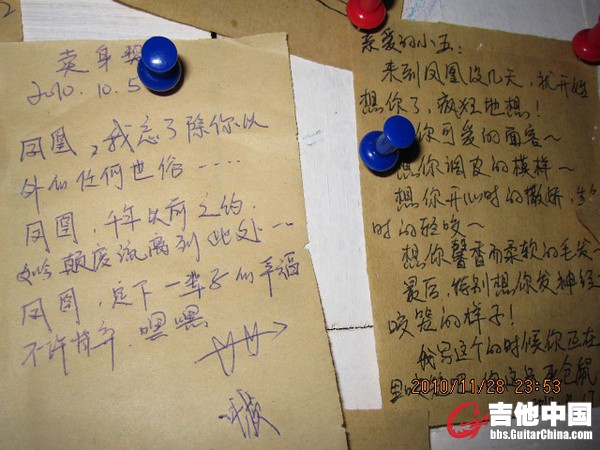 卖身契
2010.10.5
凤凰，我忘了除你以
外的任何世俗……
凤凰，千年以前之约，
如今颠废流离到此处……
凤凰，定下一辈子的幸福
不许掉弃 嘿嘿
亲爱的小五：
来到凤凰没几天，就开始
想你了，疯狂地想！
你可爱的面容～
想你调皮的模样～
想你开心时的撒娇，生气
时的轻咬～
想你馨香而柔软的毛发～
最后，特别想你发神经
咬笼的样子！
我写这个的时候你正在
仓鼠
2010/11/28 23:53
吉他中国
bbs.GuitarChina.com